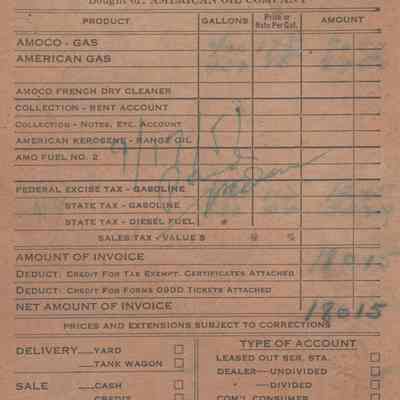 Bought of: AMERICAN OIL COMPANY
PRODUCT GALLONS Price or Rate Per Gal. AMOUNT
AMOCO - GAS
AMERICAN GAS
AMOCO FRENCH DRY CLEANER
COLLECTION - RENT ACCOUNT
COLLECTION - NOTES, ETC. ACCOUNT
AMERICAN KEROSENE - RANGE OIL
AMO FUEL NO. 2
FEDERAL EXCISE TAX - GASOLINE
STATE TAX - GASOLINE
STATE TAX - DIESEL FUEL
SALES TAX - VALUE $ @ %
AMOUNT OF INVOICE 180 15
DEDUCT: CREDIT FOR TAX EXEMPT. CERTIFICATES ATTACHED
DEDUCT: CREDIT FOR FORMS 0900 TICKETS ATTACHED
NET AMOUNT OF INVOICE 180 15
PRICES AND EXTENSIONS SUBJECT TO CORRECTIONS
DELIVERY YARD
TANK WAGON
SALE CASH
CREDIT
TYPE OF ACCOUNT
LEASED OUT SER. STA.
DEALER—UNDIVIDED
" —DIVIDED
COM'L CONSUMER